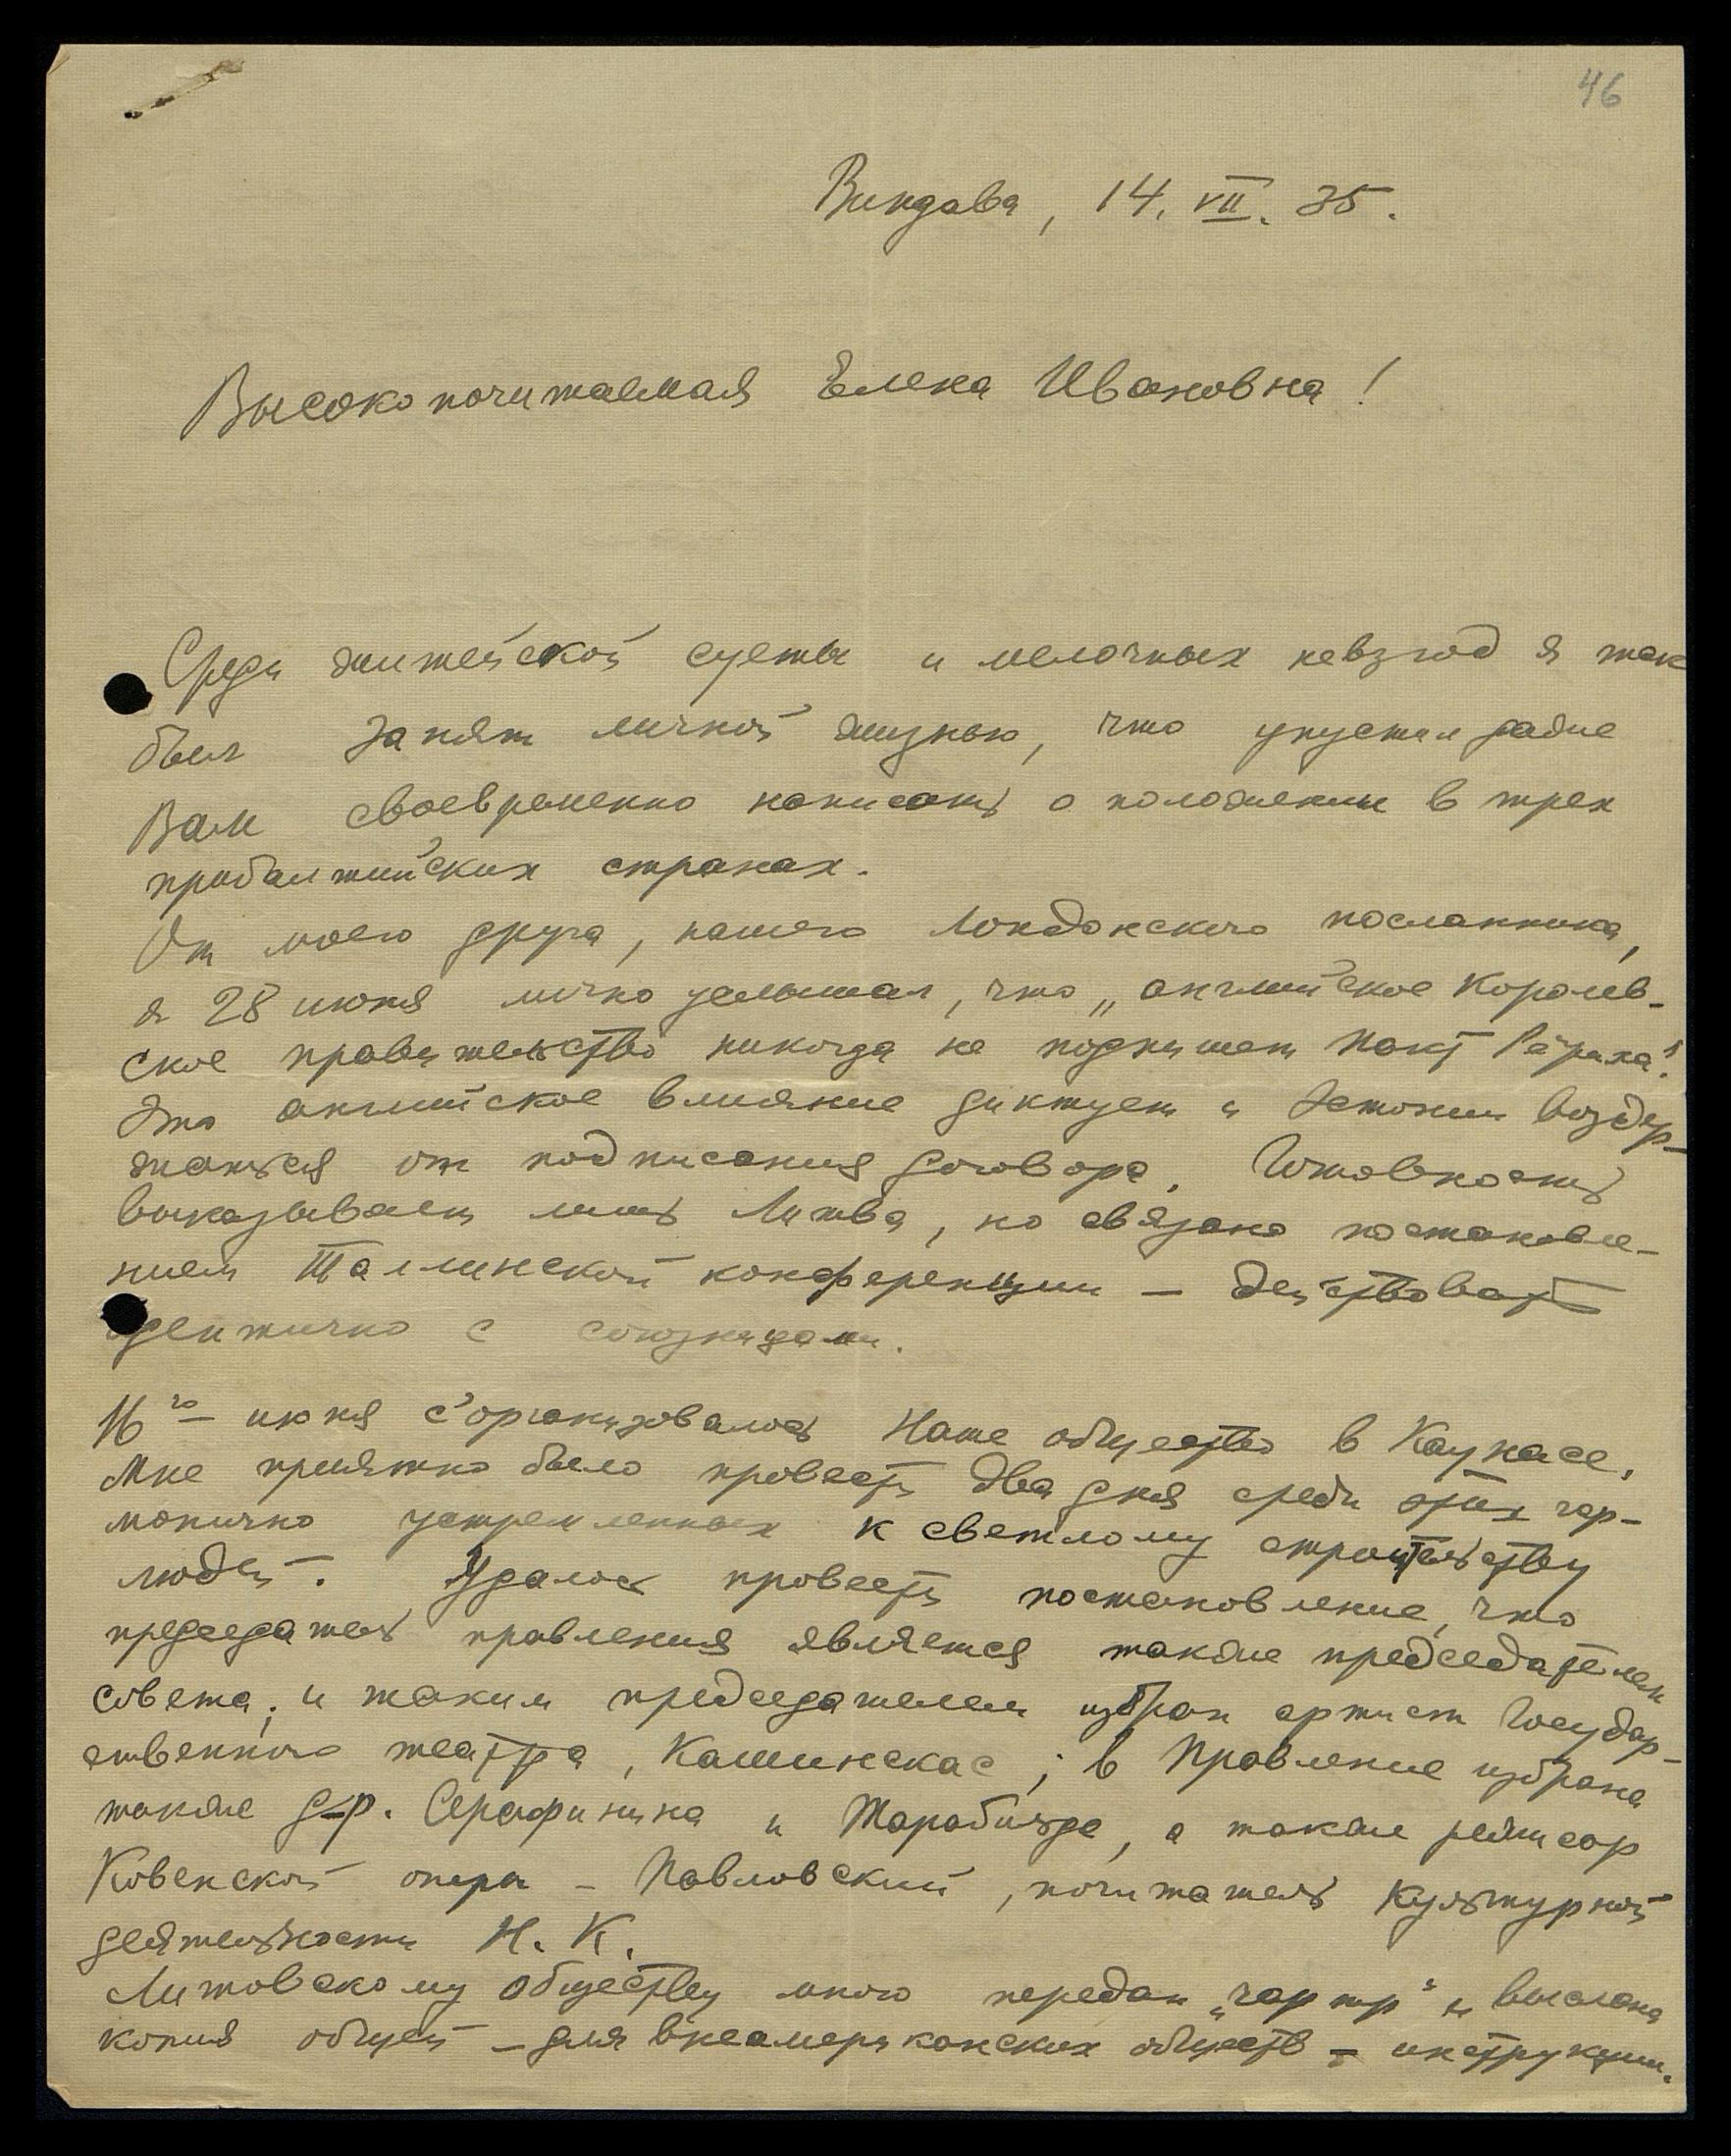 46
Виндава, 14. VII. 35.
Высокопочитаемая Елена Ивановна!
Среди житейской суеты и мелочных невзгод я так
был занят личной жизнью, что упустил даже
Вам своевременно написать о положении в трех
прибалтийских странах.
От моего друга, нашего Лондонского посланника,
я 28 июня лично услышал, что „английское Королев-
ское правительство никогда не подпишет Пакт Рериха".
Это английское влияние диктует и Эстонии воздер-
жаться от подписания договора. Готовность
выказывает лишь Литва, но связана постановле-
нием Таллинской конференции – действовать
идентично с союзницами.
16го июня с'организовалось Наше общество в Каунасе.
Мне приятно было провести два дня среди этих гар-
монично устремленных к светлому строительству
людей. Удалось провести постановление, что
председатель правления является также председателем
совета; и таким председателем избран артист Государ-
ственного театра, Кашинскас; в Правление избрана
также д-р. Серафинина и Тарабильде, а также режисор
Ковенской оперы – Павловский, почитатель культурной
деятельности Н. К.
Литовскому Обществу мною передан „чартр" и выслана
копия общей – для внеамериканских обществ – инструкции.